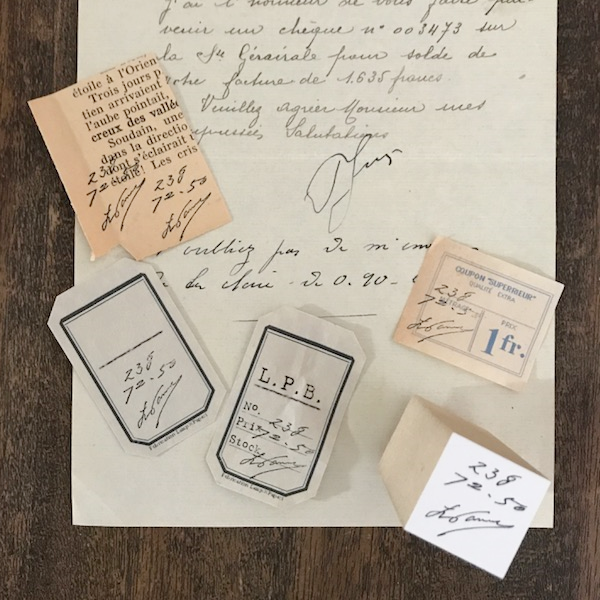 J'ai l'honneur de vous faire par-
venir un chèque n° 003473 sur
la Sté Générale pour solde de
votre facture de 1.635 francs.
Veuillez agréer Monsieur mes
empressées Salutations
oubliez pas de m'en
de 0.90
étoile à l'Orien
Trois jours p
tien arrivaient
l'aube pointait,
creux des vallée
Soudain, une
dans la directio
dont s'éclairait
étoile! Les cris
238
72.50
238
72.50
COUPON "SUPERIEUR"
QUALITÉ EXTRA
PRIX
1 fr.
238
72.50
238
72.50
L.P.B.
No. 238
Prix 72.50
Stock
238
72.50